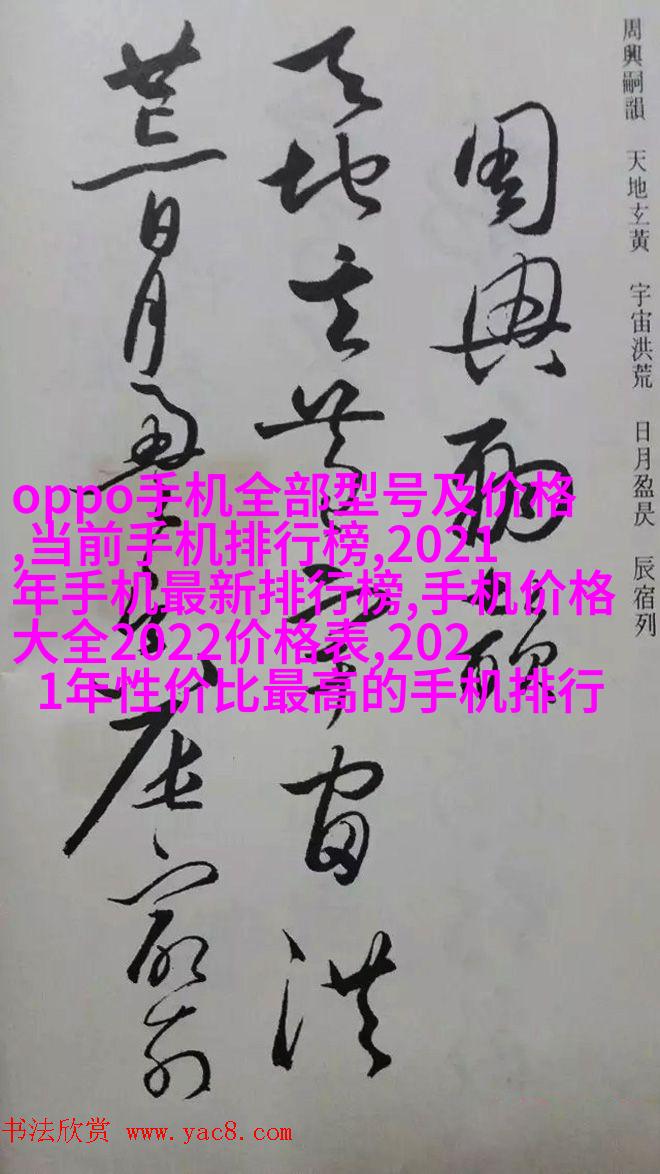 周興嗣韻 天地玄黃 宇宙洪荒 日月盈昃 辰宿列
周興嗣韻
天地玄黃宇宙洪
荒日月盈昃辰宿列
oppo手机全部型号及价格
,当前手机排行榜,2021
年手机最新排行榜,手机价格
大全2022价格表,202
1年性价比最高的手机排行
书法欣赏 www.yac8.com